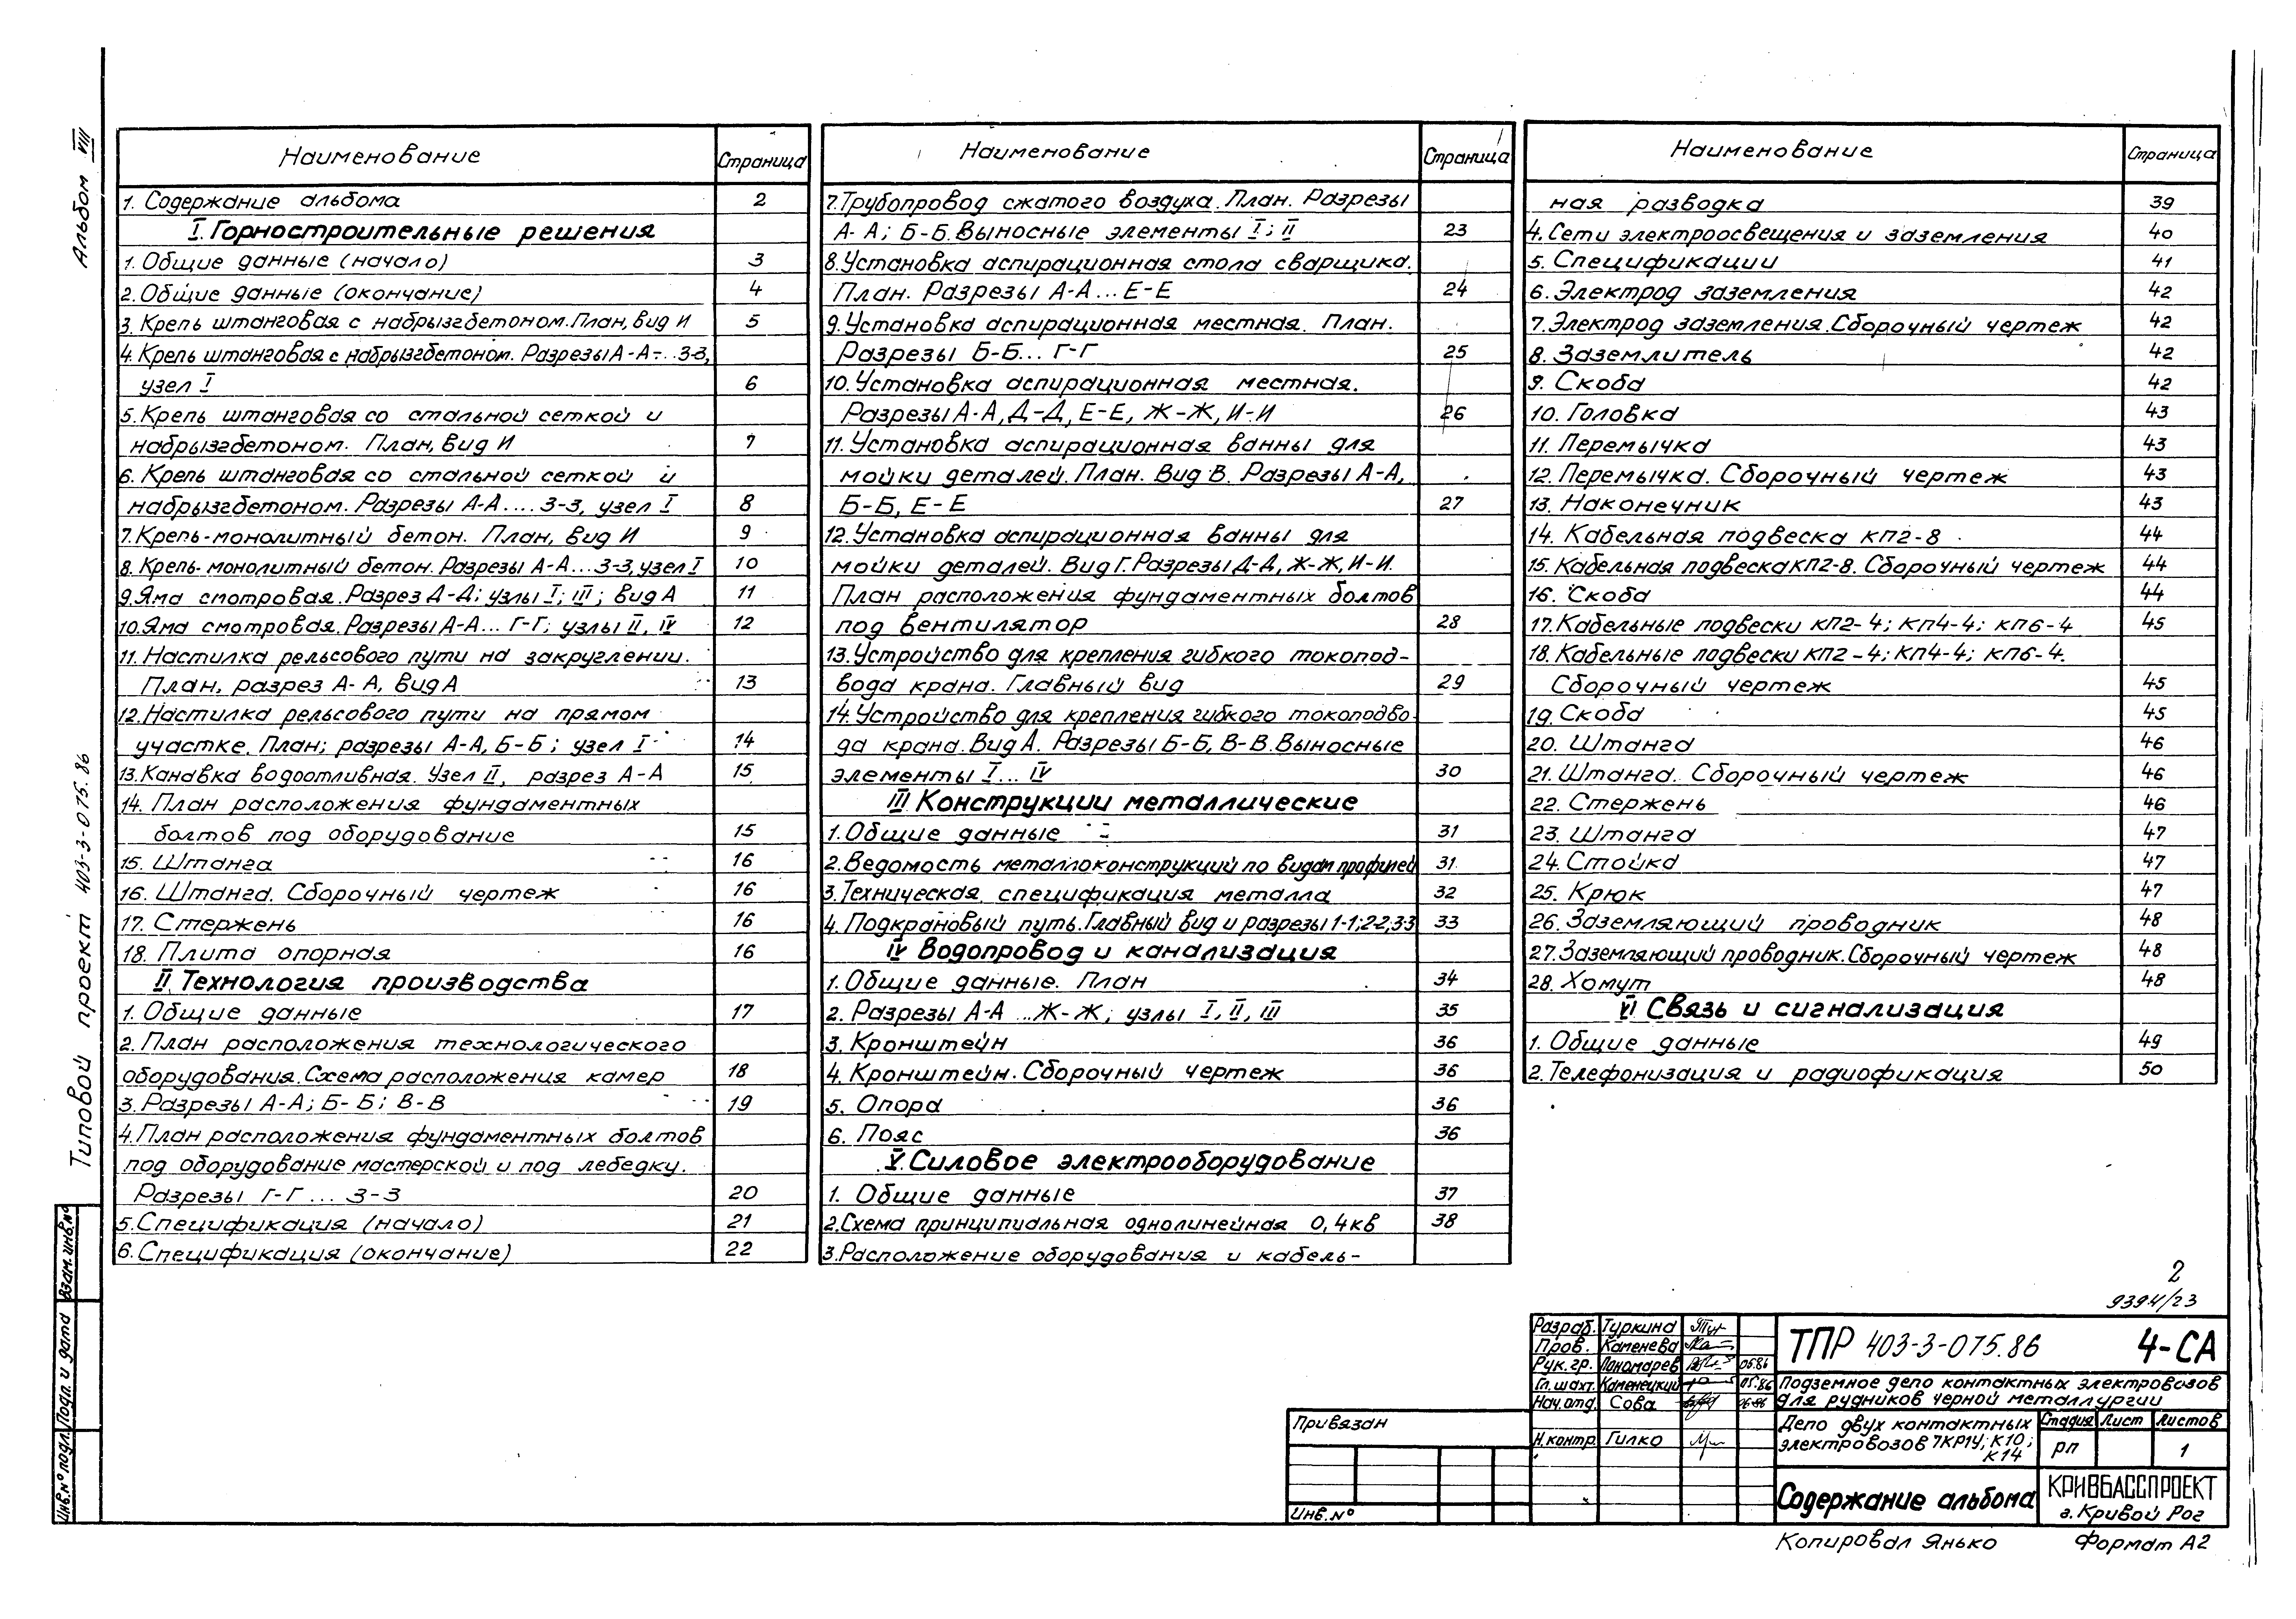 Альбом VII
Типовой проект 403-3-075.86
Взам. инв. №
Подп. и дата
Инв. № подл.
Наименование Страница
1. Содержание альбома 2
I. Горностроительные решения
1. Общие данные (начало) 3
2. Общие данные (окончание) 4
3. Крепь штанговая с набрызгбетоном. План, вид И 5
4. Крепь штанговая с набрызгбетоном. Разрезы А-А-...З-З,
узел I 6
5. Крепь штанговая со стальной сеткой и
набрызгбетоном. План, вид И 7
6. Крепь штанговая со стальной сеткой и
набрызгбетоном. Разрезы А-А....З-З, узел I 8
7. Крепь-монолитный бетон. План, вид И 9
8. Крепь-монолитный бетон. Разрезы А-А...З-З, узел I 10
9. Яма смотровая. Разрез Д-Д; узлы I; III; вид А 11
10. Яма смотровая. Разрезы А-А...Г-Г; узлы II, IV 12
11. Настилка рельсового пути на закруглении.
План, разрез А-А, вид А 13
12. Настилка рельсового пути на прямом
участке. План; разрезы А-А, Б-Б; узел I 14
13. Канавка водоотливная. Узел II, разрез А-А 15
14. План расположения фундаментных
болтов под оборудование 15
15. Штанга 16
16. Штанга. Сборочный чертеж 16
17. Стержень 16
18. Плита опорная 16
II. Технология производства
1. Общие данные 17
2. План расположения технологического
оборудования. Схема расположения камер 18
3. Разрезы А-А; Б-Б; В-В 19
4. План расположения фундаментных болтов
под оборудование мастерской и под лебедку.
Разрезы Г-Г...З-З 20
5. Спецификация (начало) 21
6. Спецификация (окончание) 22
Наименование Страница
7. Трубопровод сжатого воздуха. План. Разрезы
А-А; Б-Б. Выносные элементы I; II 23
8. Установка аспирационная стола сварщика.
План. Разрезы А-А...Е-Е 24
9. Установка аспирационная местная. План.
Разрезы Б-Б...Г-Г 25
10. Установка аспирационная местная.
Разрезы А-А, Д-Д, Е-Е, Ж-Ж, И-И 26
11. Установка аспирационная ванны для
мойки деталей. План. Вид В. Разрезы А-А,
Б-Б, Е-Е 27
12. Установка аспирационная ванны для
мойки деталей. Вид Г. Разрезы Д-Д, Ж-Ж, И-И.
План расположения фундаментных болтов
под вентилятор 28
13. Устройство для крепления гибкого токопод-
вода крана. Главный вид 29
14. Устройство для крепления гибкого токоподво-
да крана. Вид А. Разрезы Б-Б, В-В. Выносные
элементы I...IV 30
III Конструкции металлические
1. Общие данные 31
2. Ведомость металлоконструкций по видам профилей 31
3. Техническая спецификация металла 32
4. Подкрановый путь. Главный вид и разрезы 1-1; 2-2; 3-3 33
IV Водопровод и канализация
1. Общие данные. План 34
2. Разрезы А-А...Ж-Ж; узлы I, II, III 35
3. Кронштейн 36
4. Кронштейн. Сборочный чертеж 36
5. Опора 36
6. Пояс 36
V. Силовое электрооборудование
1. Общие данные 37
2. Схема принципиальная однолинейная 0,4кв 38
3. Расположение оборудования и кабель-
Наименование Страница
ная разводка 39
4. Сети электроосвещения и заземления 40
5. Спецификации 41
6. Электрод заземления 42
7. Электрод заземления. Сборочный чертеж 42
8. Заземлитель 42
9. Скоба 42
10. Головка 43
11. Перемычка 43
12. Перемычка. Сборочный чертеж 43
13. Наконечник 43
14. Кабельная подвеска КП2-8 44
15. Кабельная подвеска КП2-8. Сборочный чертеж 44
16. Скоба 44
17. Кабельные подвески КП2-4; КП4-4; КП6-4 45
18. Кабельные подвески КП2-4; КП4-4; КП6-4.
Сборочный чертеж 45
19. Скоба 45
20. Штанга 46
21. Штанга. Сборочный чертеж 46
22. Стержень 46
23. Штанга 47
24. Стойка 47
25. Крюк 47
26. Заземляющий проводник 48
27. Заземляющий проводник. Сборочный чертеж 48
28. Хомут 48
VI Связь и сигнализация
1. Общие данные 49
2. Телефонизация и радиофикация 50
2
9394/23
Разраб. Туркина
Пров. Каменева
Рук. гр. Пономарев 06.86
Гл. шахт. Каменецкий 05.86
Нач. отд. Сова 06.86
Н. контр. Гилко
Привязан
Инв. №
ТПР 403-3-075.86 4-СА
Подземное депо контактных электровозов
для рудников черной металлургии
Депо двух контактных
электровозов 7КР1У; К10;
К14
Стадия Лист Листов
РП 1
Содержание альбома
КРИВБАССПРОЕКТ
г. Кривой Рог
Копировал Янько Формат А2